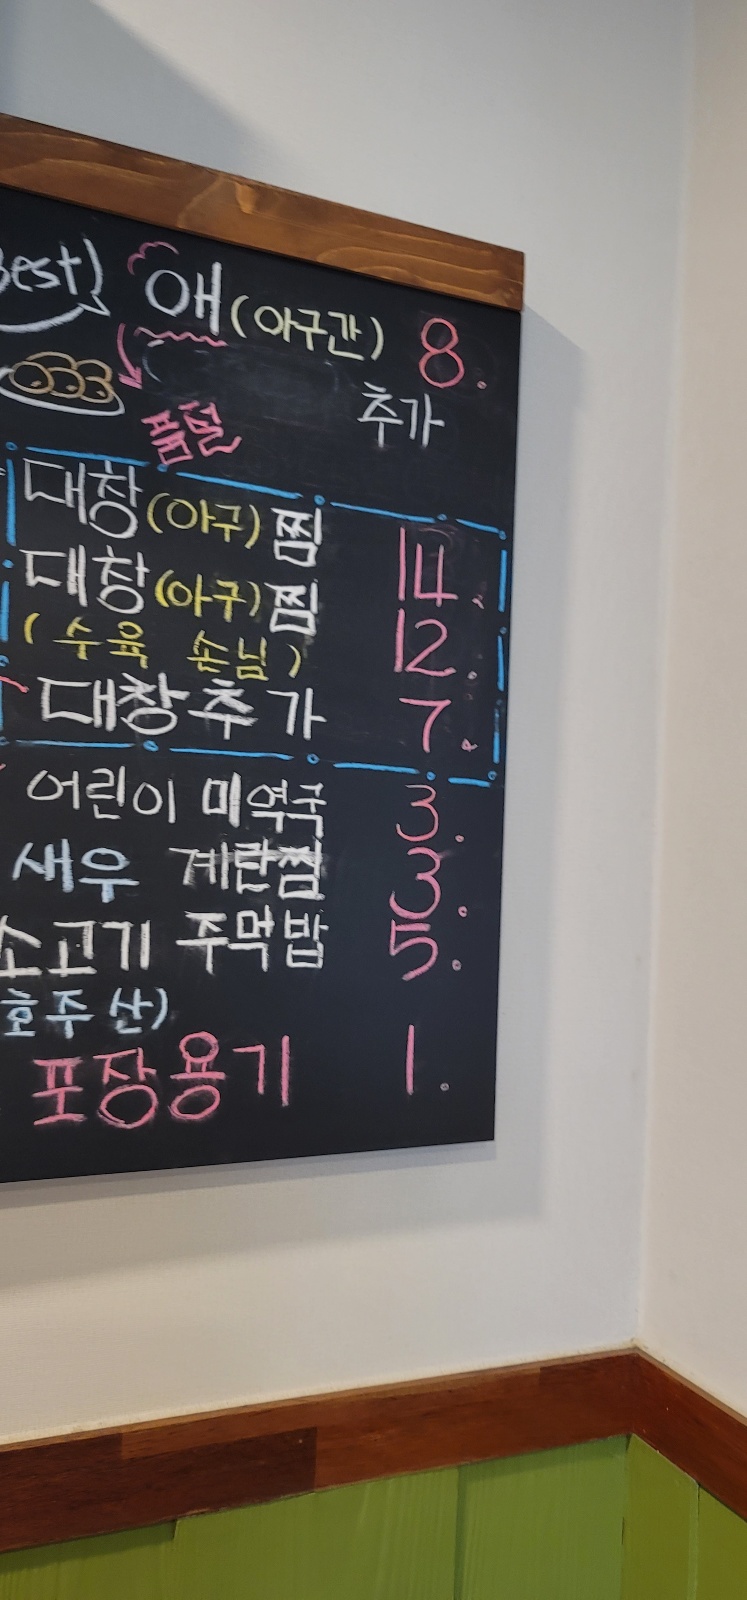 Best) 애 (아구간) 8.
추가
품절
대창 (아구) 찜 14.
대창 (아구) 찜 12.
(수육 손님)
대창추가 7.
어린이 미역국 3.
새우 계란찜 3.
소고기 주먹밥 5.
호주산)
포장용기 1.